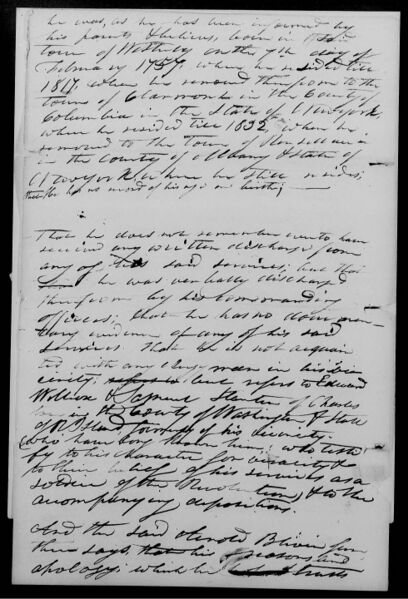 he was, as he has been informed by
his parents & believes, born in said
town of Westerly on the 7th day of
February 1757, where he resided till
1817, when he removed therefrom to the
town of in the County of
Columbia in the State of New York,
where he resided till 1832 when he
removed to the town of
in the County of Albany & State of
New York where he still resides;
that he has no record of his age or birth;
That he does not remember ever to have
received any written discharge from
any of his said services; but that
he was verbally discharged
therefrom by his commanding
officers; that he has no documen
tary evidence of any of his said
services. That he is not acquain
ted with any clergyman in his vi
cinity, but refers to Edward
Wilcox & Stanton of Charles
in the County of Washington & State
of R. Island of his vicinity,
who have long known him, who testi
fy to his character for veracity &
to their belief of his services as a
soldier of the Revolution, & to the
accompanying depositions.
And the said Arnold Bliven fur
ther says, that his reasons and
apology which he